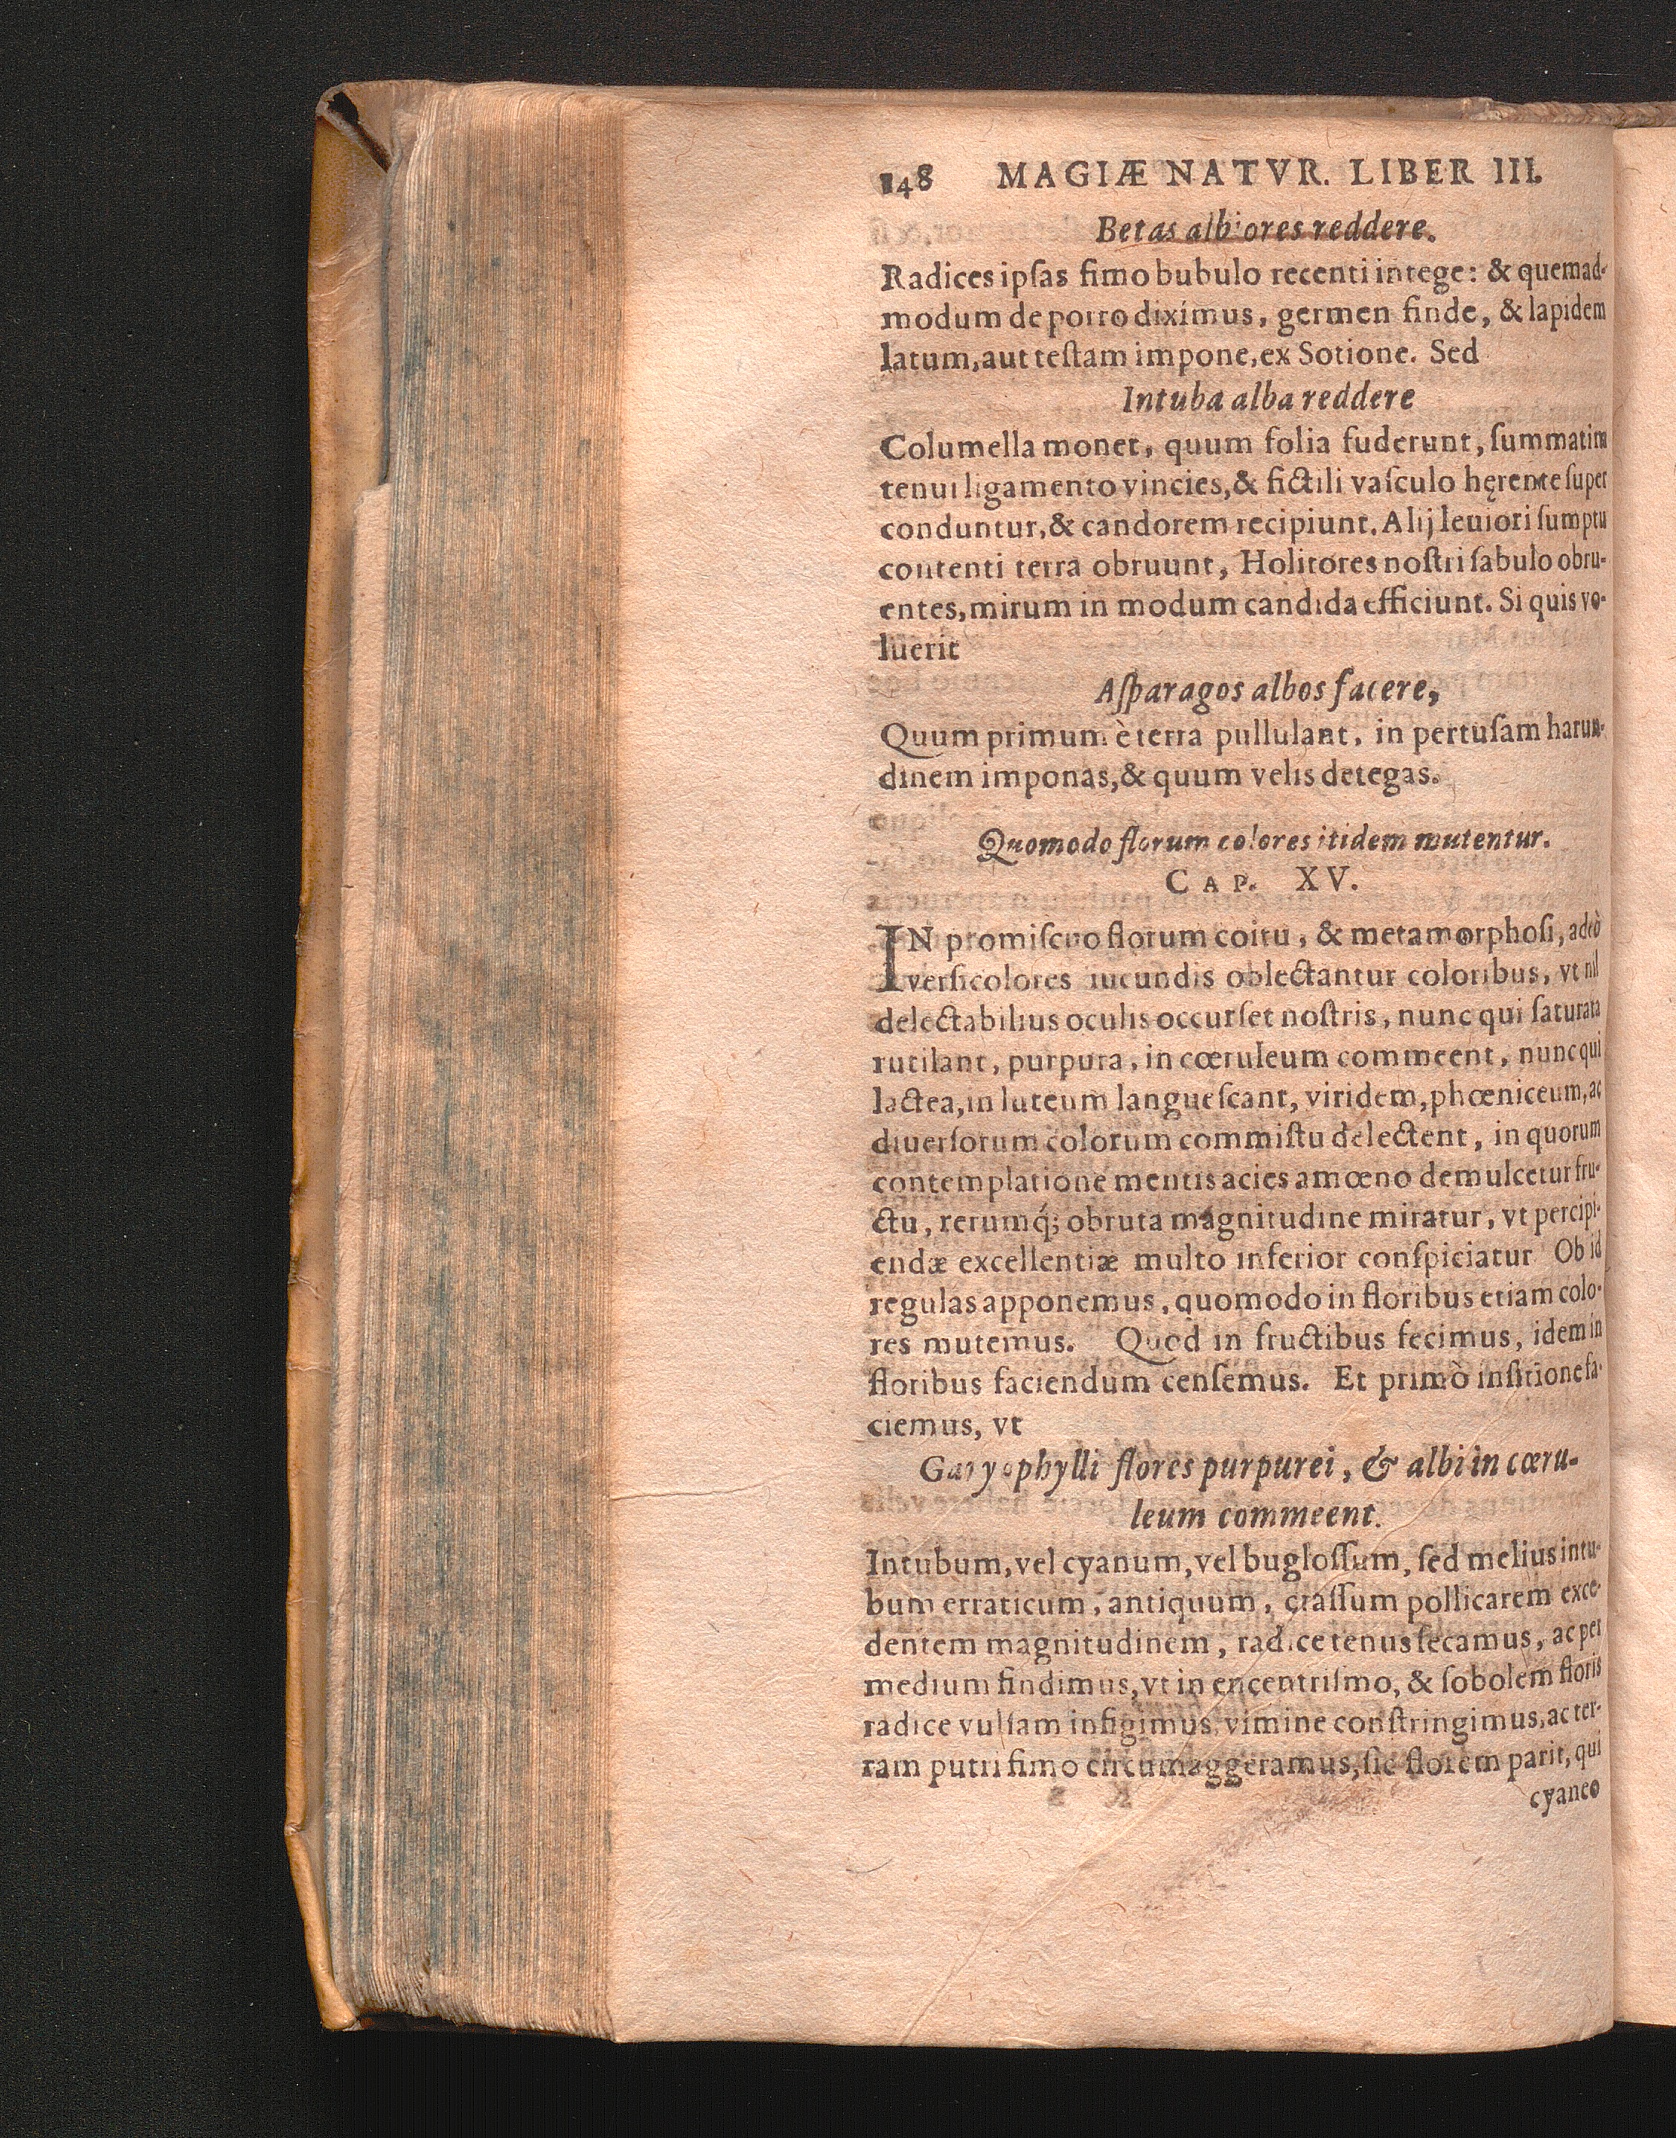 148 MAGIÆ NATVR. LIBER III.
Betas albiores reddere.
Radices ipſas fimo bubulo recenti intege: & quemad-
modum de porro diximus, germen finde, & lapidem
latum, aut teſtam impone, ex Sotione. Sed
Intuba alba reddere
Columella monet, quum folia fuderunt, ſummatim
tenui ligamento vincies, & fictili vaſculo hęrente ſuper
conduntur, & candorem recipiunt. Alij leuiori ſumptu
contenti terra obruunt, Holitores noſtri ſabulo obru-
entes, mirum in modum candida efficiunt. Si quis vo-
luerit
Aſparagos albos facere,
Quum primum è terra pullulant, in pertuſam harun-
dinem imponas, & quum velis detegas.
Quomodo florum colores itidem mutentur.
CAP. XV.
IN promiſcuo florum coitu, & metamorphoſi, adeò
verſicolores iucundis oblectantur coloribus, vt nil
delectabilius oculis occurſet noſtris, nunc qui ſaturata
rutilant, purpura, in cœruleum commeent, nunc qui
lactea, in luteum langueſcant, viridem, phœniceum, ac
diuerſorum colorum commiſtu delectent, in quorum
contemplatione mentis acies amœno demulcetur fru-
ctu, rerumq́; obruta magnitudine miratur, vt percipi-
endæ excellentiæ multo inferior conſpiciatur Ob id
regulas apponemus, quomodo in floribus etiam colo-
res mutemus. Quod in fructibus fecimus, idem in
floribus faciendum cenſemus. Et primò inſitione fa-
ciemus, vt
Garyophylli flores purpurei, & albi in cœru-
leum commeent.
Intubum, vel cyanum, vel bugloſſum, ſed melius intu-
bum erraticum, antiquum, craſſum pollicarem exce-
dentem magnitudinem, radice tenus ſecamus, ac per
medium findimus, vt in encentriſmo, & ſobolem floris
radice vulſam infigimus, vimine conſtringimus, ac ter-
ram putri fimo circumaggeramus, ſic florem parit, qui
cyaneo